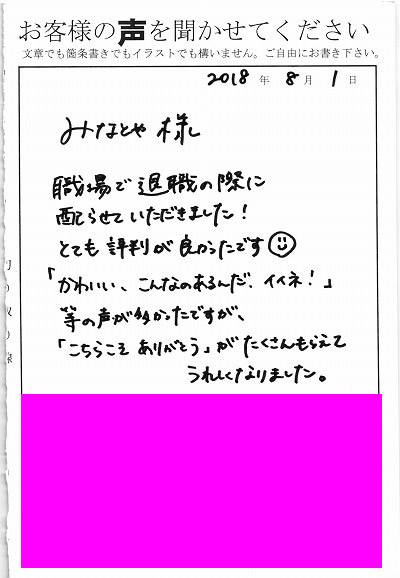 お客様の声を聞かせてください
文章でも箇条書きでもイラストでも構いません。ご自由にお書き下さい。
2018年 8月 1日
みなとや 様
職場で退職の際に
配らせていただきました!
とても評判が良かったです
「かわいい、こんなのあるんだ、イイネ!」
等の声が多かったですが、
「こちらこそありがとう」がたくさんもらえて
うれしくなりました。